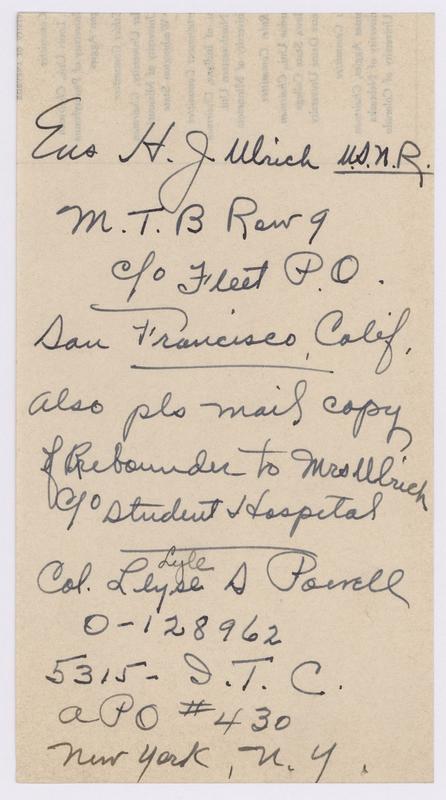 Ens H. J Ulrich U.S.N.R.
M. T. B Ron 9
c/o Fleet P.O.
San Francisco, Calif,
also pls mail copy
of Rebounder to Mrs Ulrich
c/o Student Hospital
Lyle
Col. Llyse S Powell
0-128962
5315- I. T. C.
APO #430
New York, N. Y.